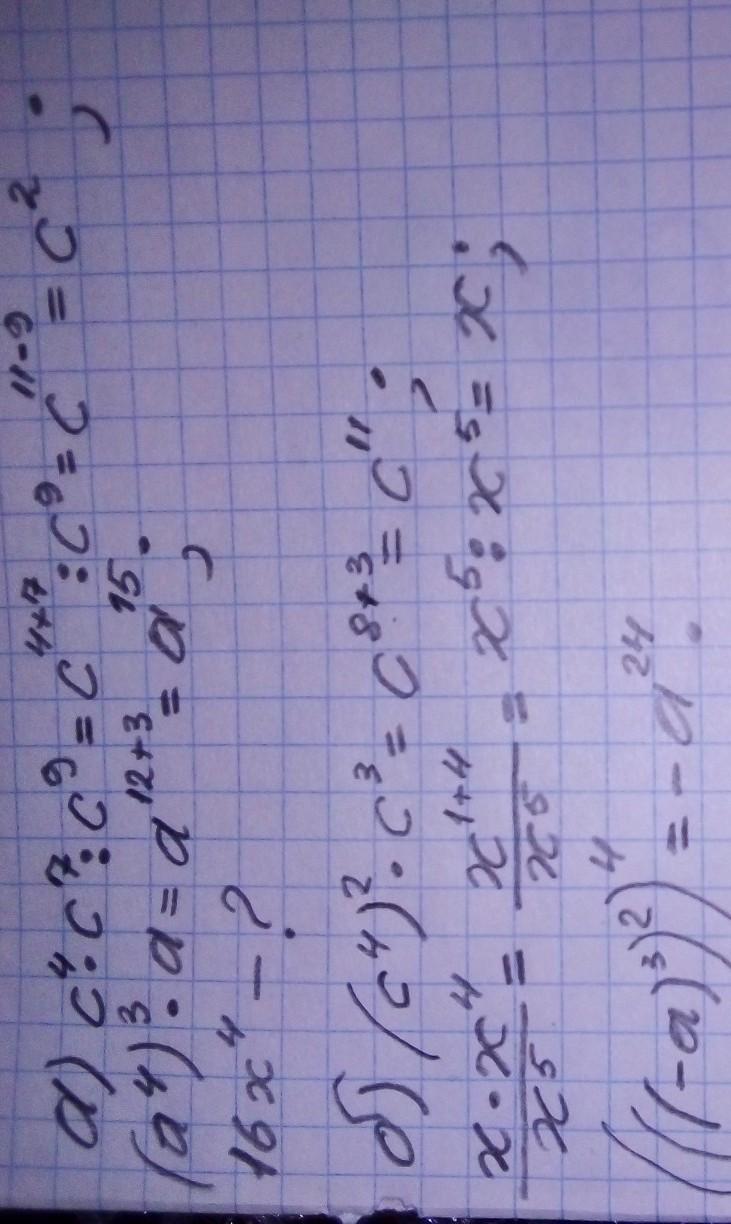 а) c⁴·c⁷:c⁹=c⁴⁺⁷:c⁹=c¹¹⁻⁹=c²;
(a⁴)³·a=a¹²⁺³=a¹⁵;
16x⁴-?
б) (c⁴)²·c³=c⁸⁺³=c¹¹;
x·x⁴/x⁵=x¹⁺⁴/x⁵=x⁵:x⁵=x;
(((-a)³)²)⁴=-a²⁴.